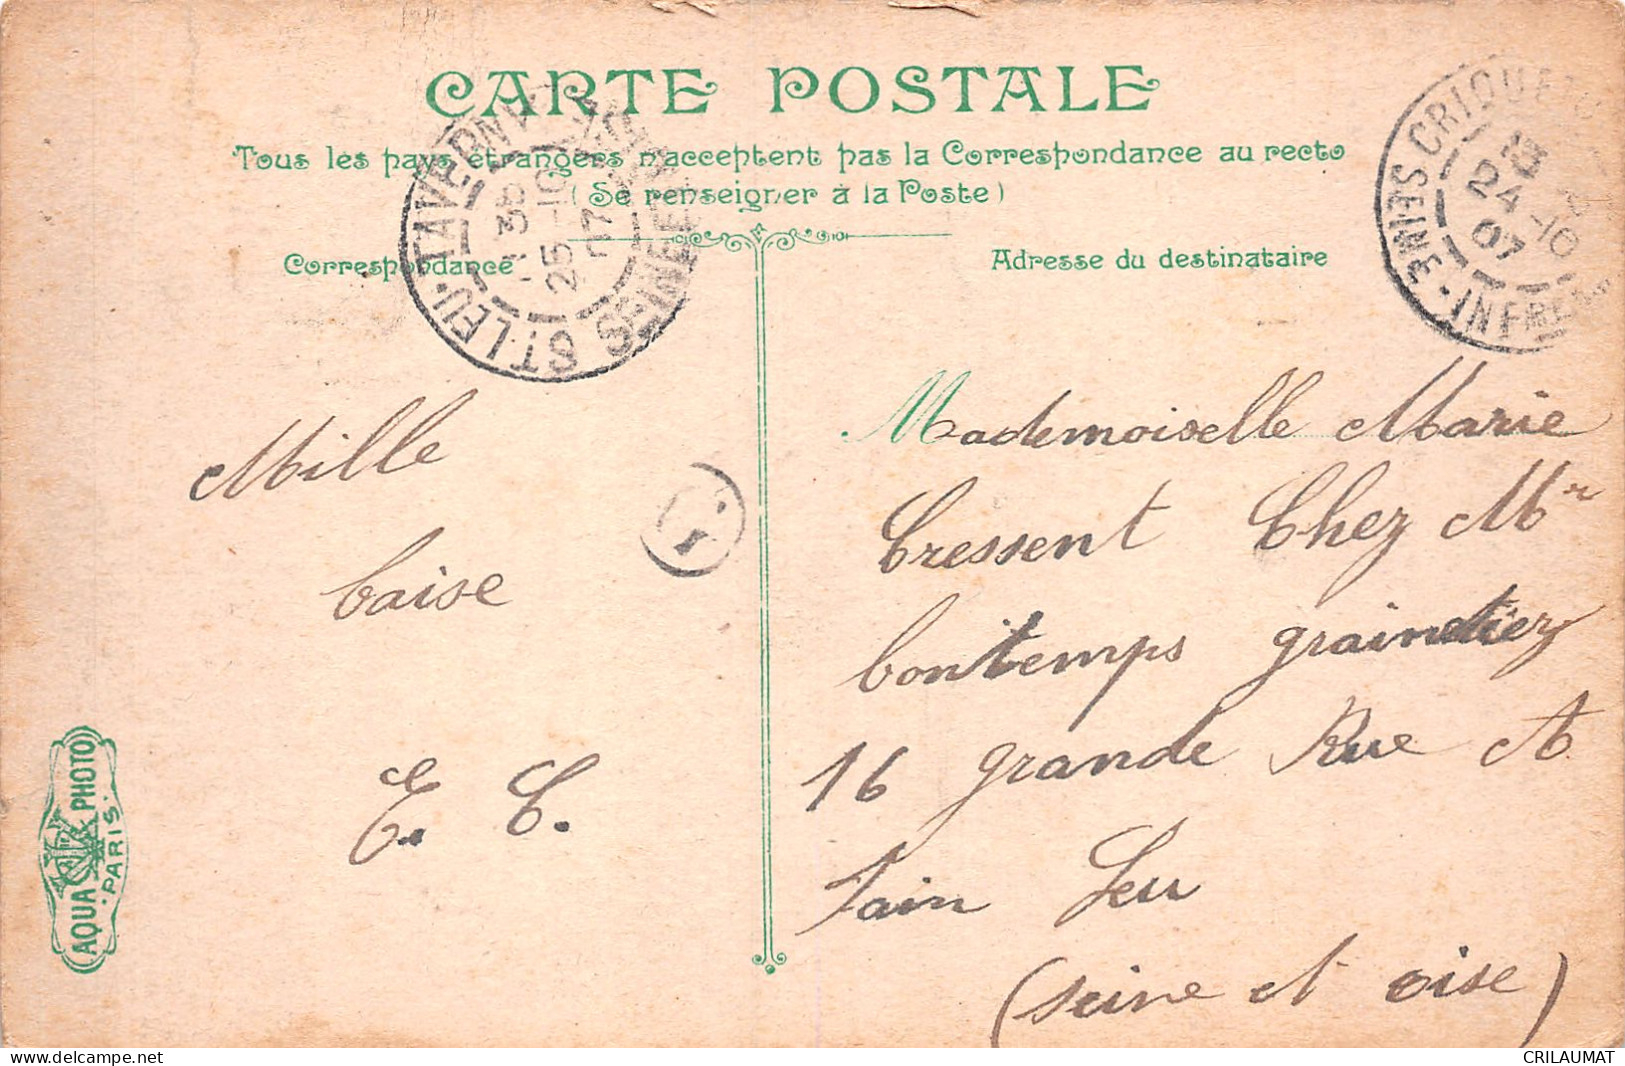 CARTE POSTALE
Tous les pays étrangers n'acceptent pas la Correspondance au recto
(Se renseigner à la Poste)
Correspondance
Adresse du destinataire
ST LEU-TAVERNY
SEINE-ET-
25-10
07
CRIQUETO
SEINE-INFRE
24-10
07
Mille
baise
E. C.
Mademoiselle Marie
Cressent Chez Mr
bontemps grainetier
16 grande Rue A
Sain Leu
(seine et oise)
AQUA PHOTO
PARIS
www.delcampe.net
CRILAUMAT